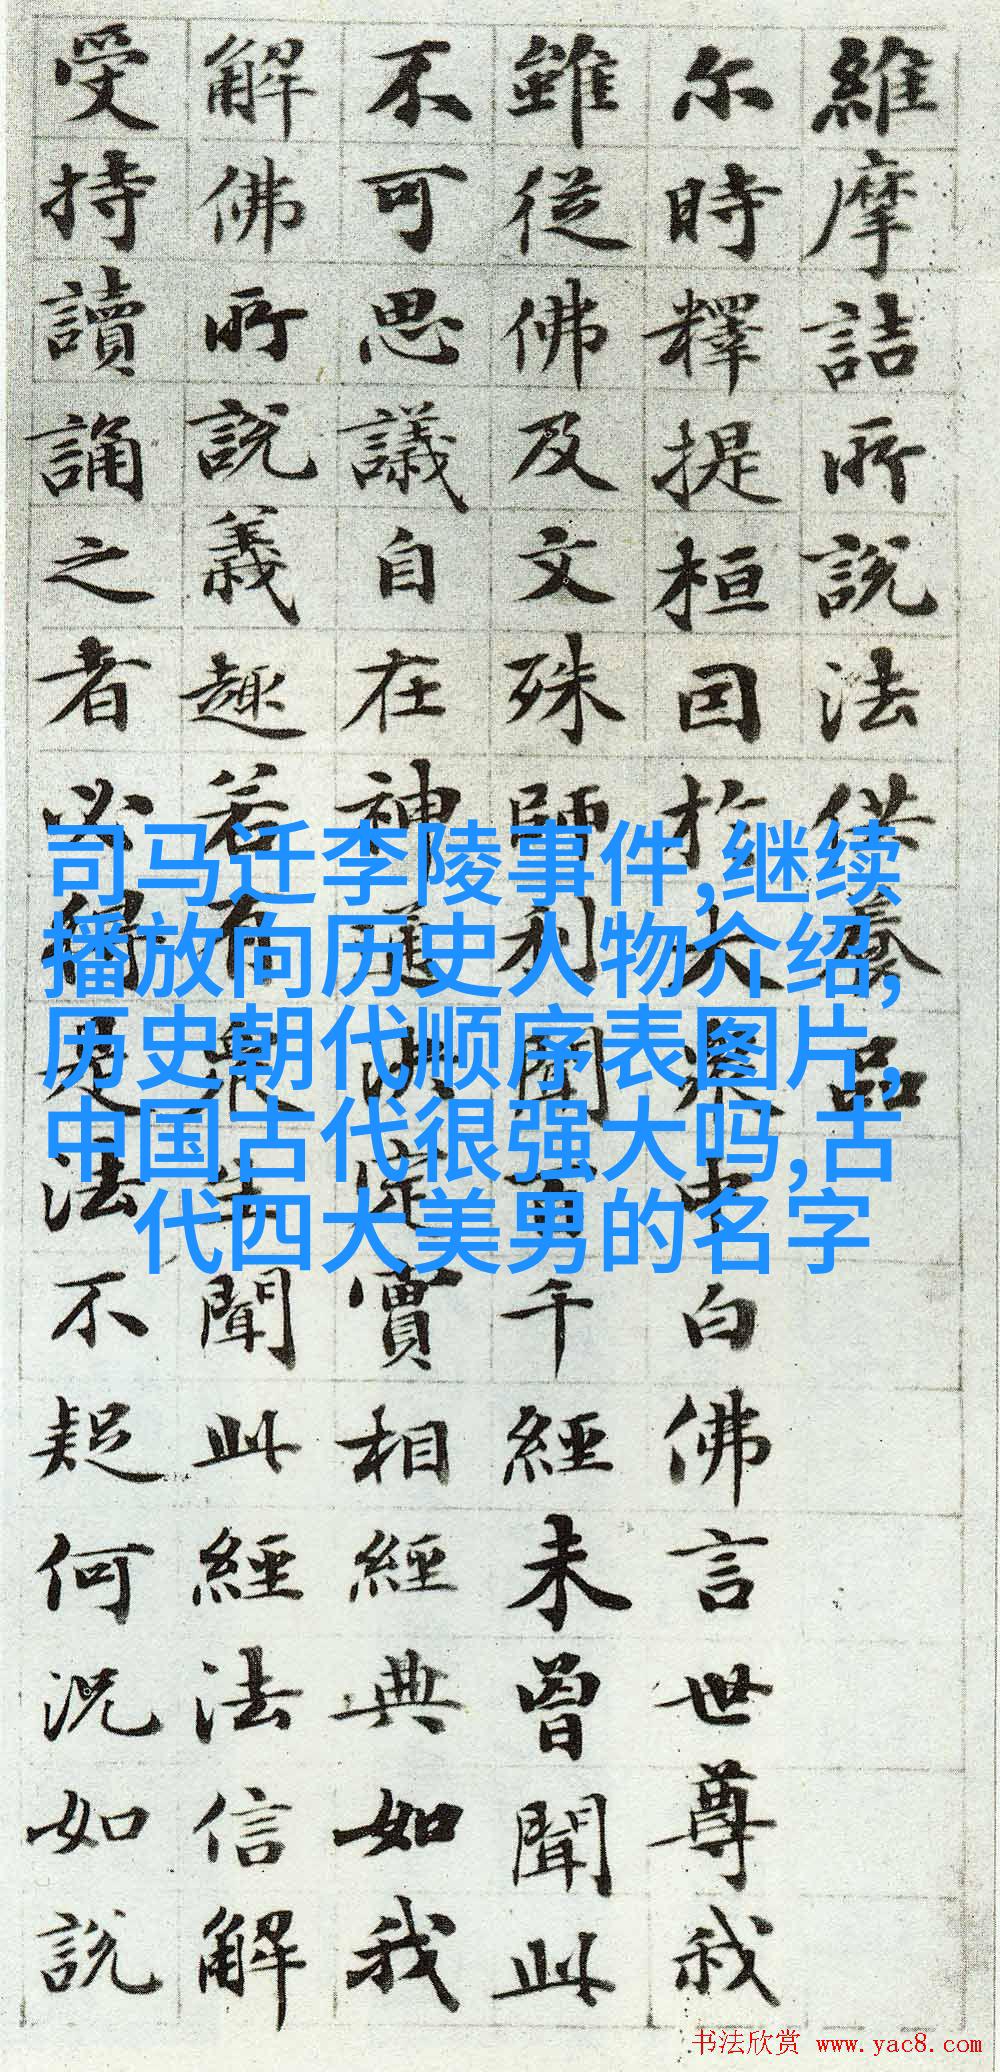 維摩詰所說法供養品
尔時釋提桓因扵大眾中白佛言世尊我
雖從佛及文殊師利聞百千經未曾聞此
不可思議自在神通決定實相經典如我
解佛所說義趣若有眾生聞此經法信解
受持讀誦之者必得是法不疑何況如說
司马迁李陵事件,继续
播放向历史人物介绍,
历史朝代顺序表图片,
中国古代很强大吗,古
代四大美男的名字
书法欣赏 www.yac8.com